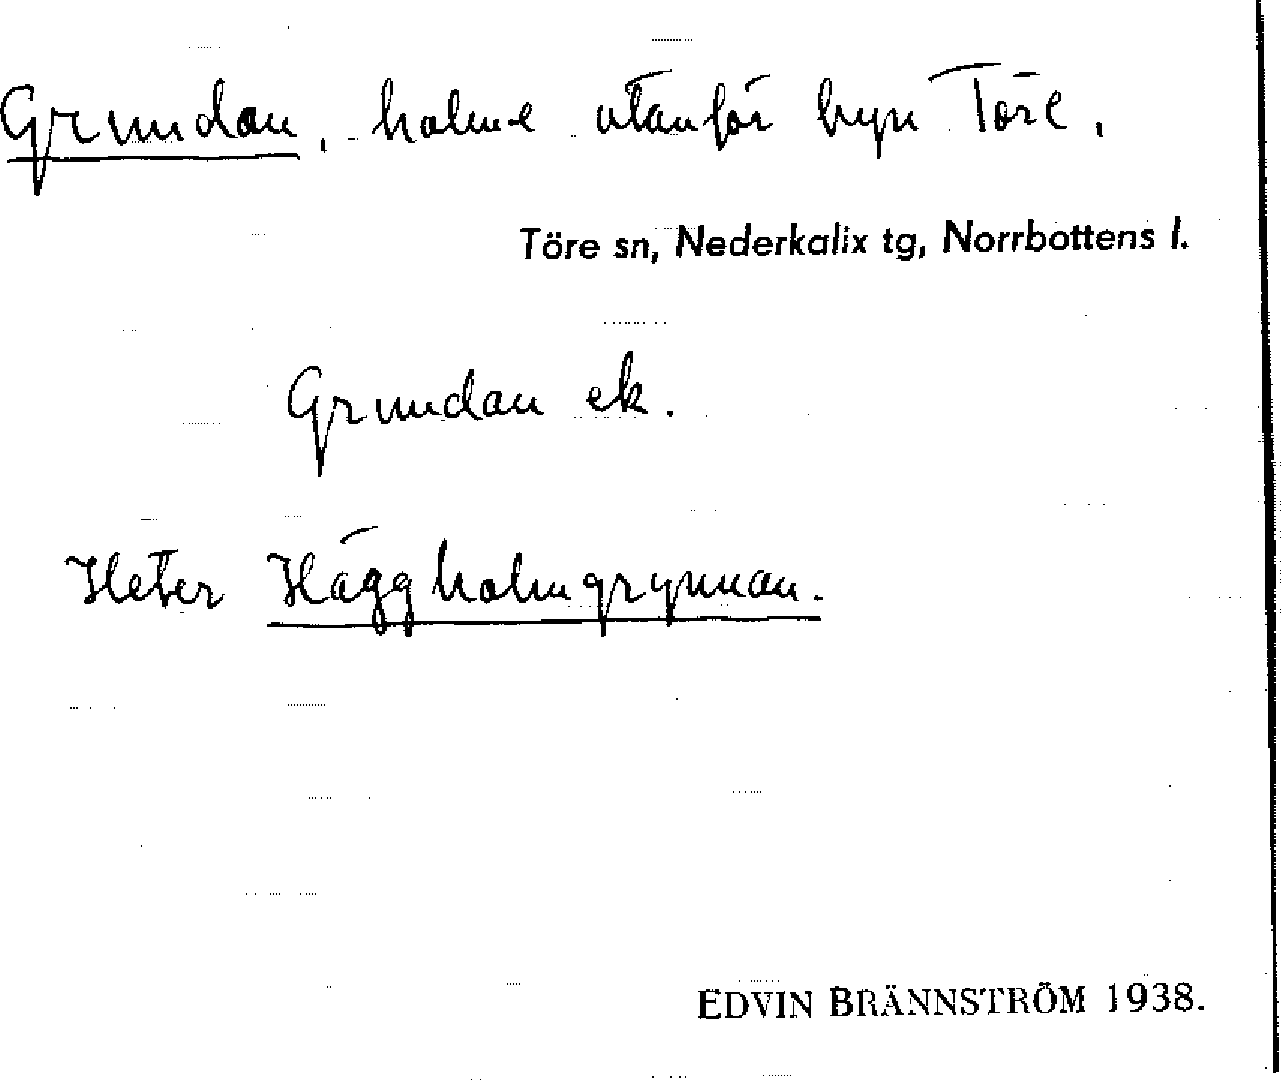 Grundan, holme utanför byn Töre.
Töre sn, Nederkalix tg, Norrbottens l.
Grundan ek.
Heter Häggholmgrynnan.
EDVIN BRÄNNSTRÖM 1938.